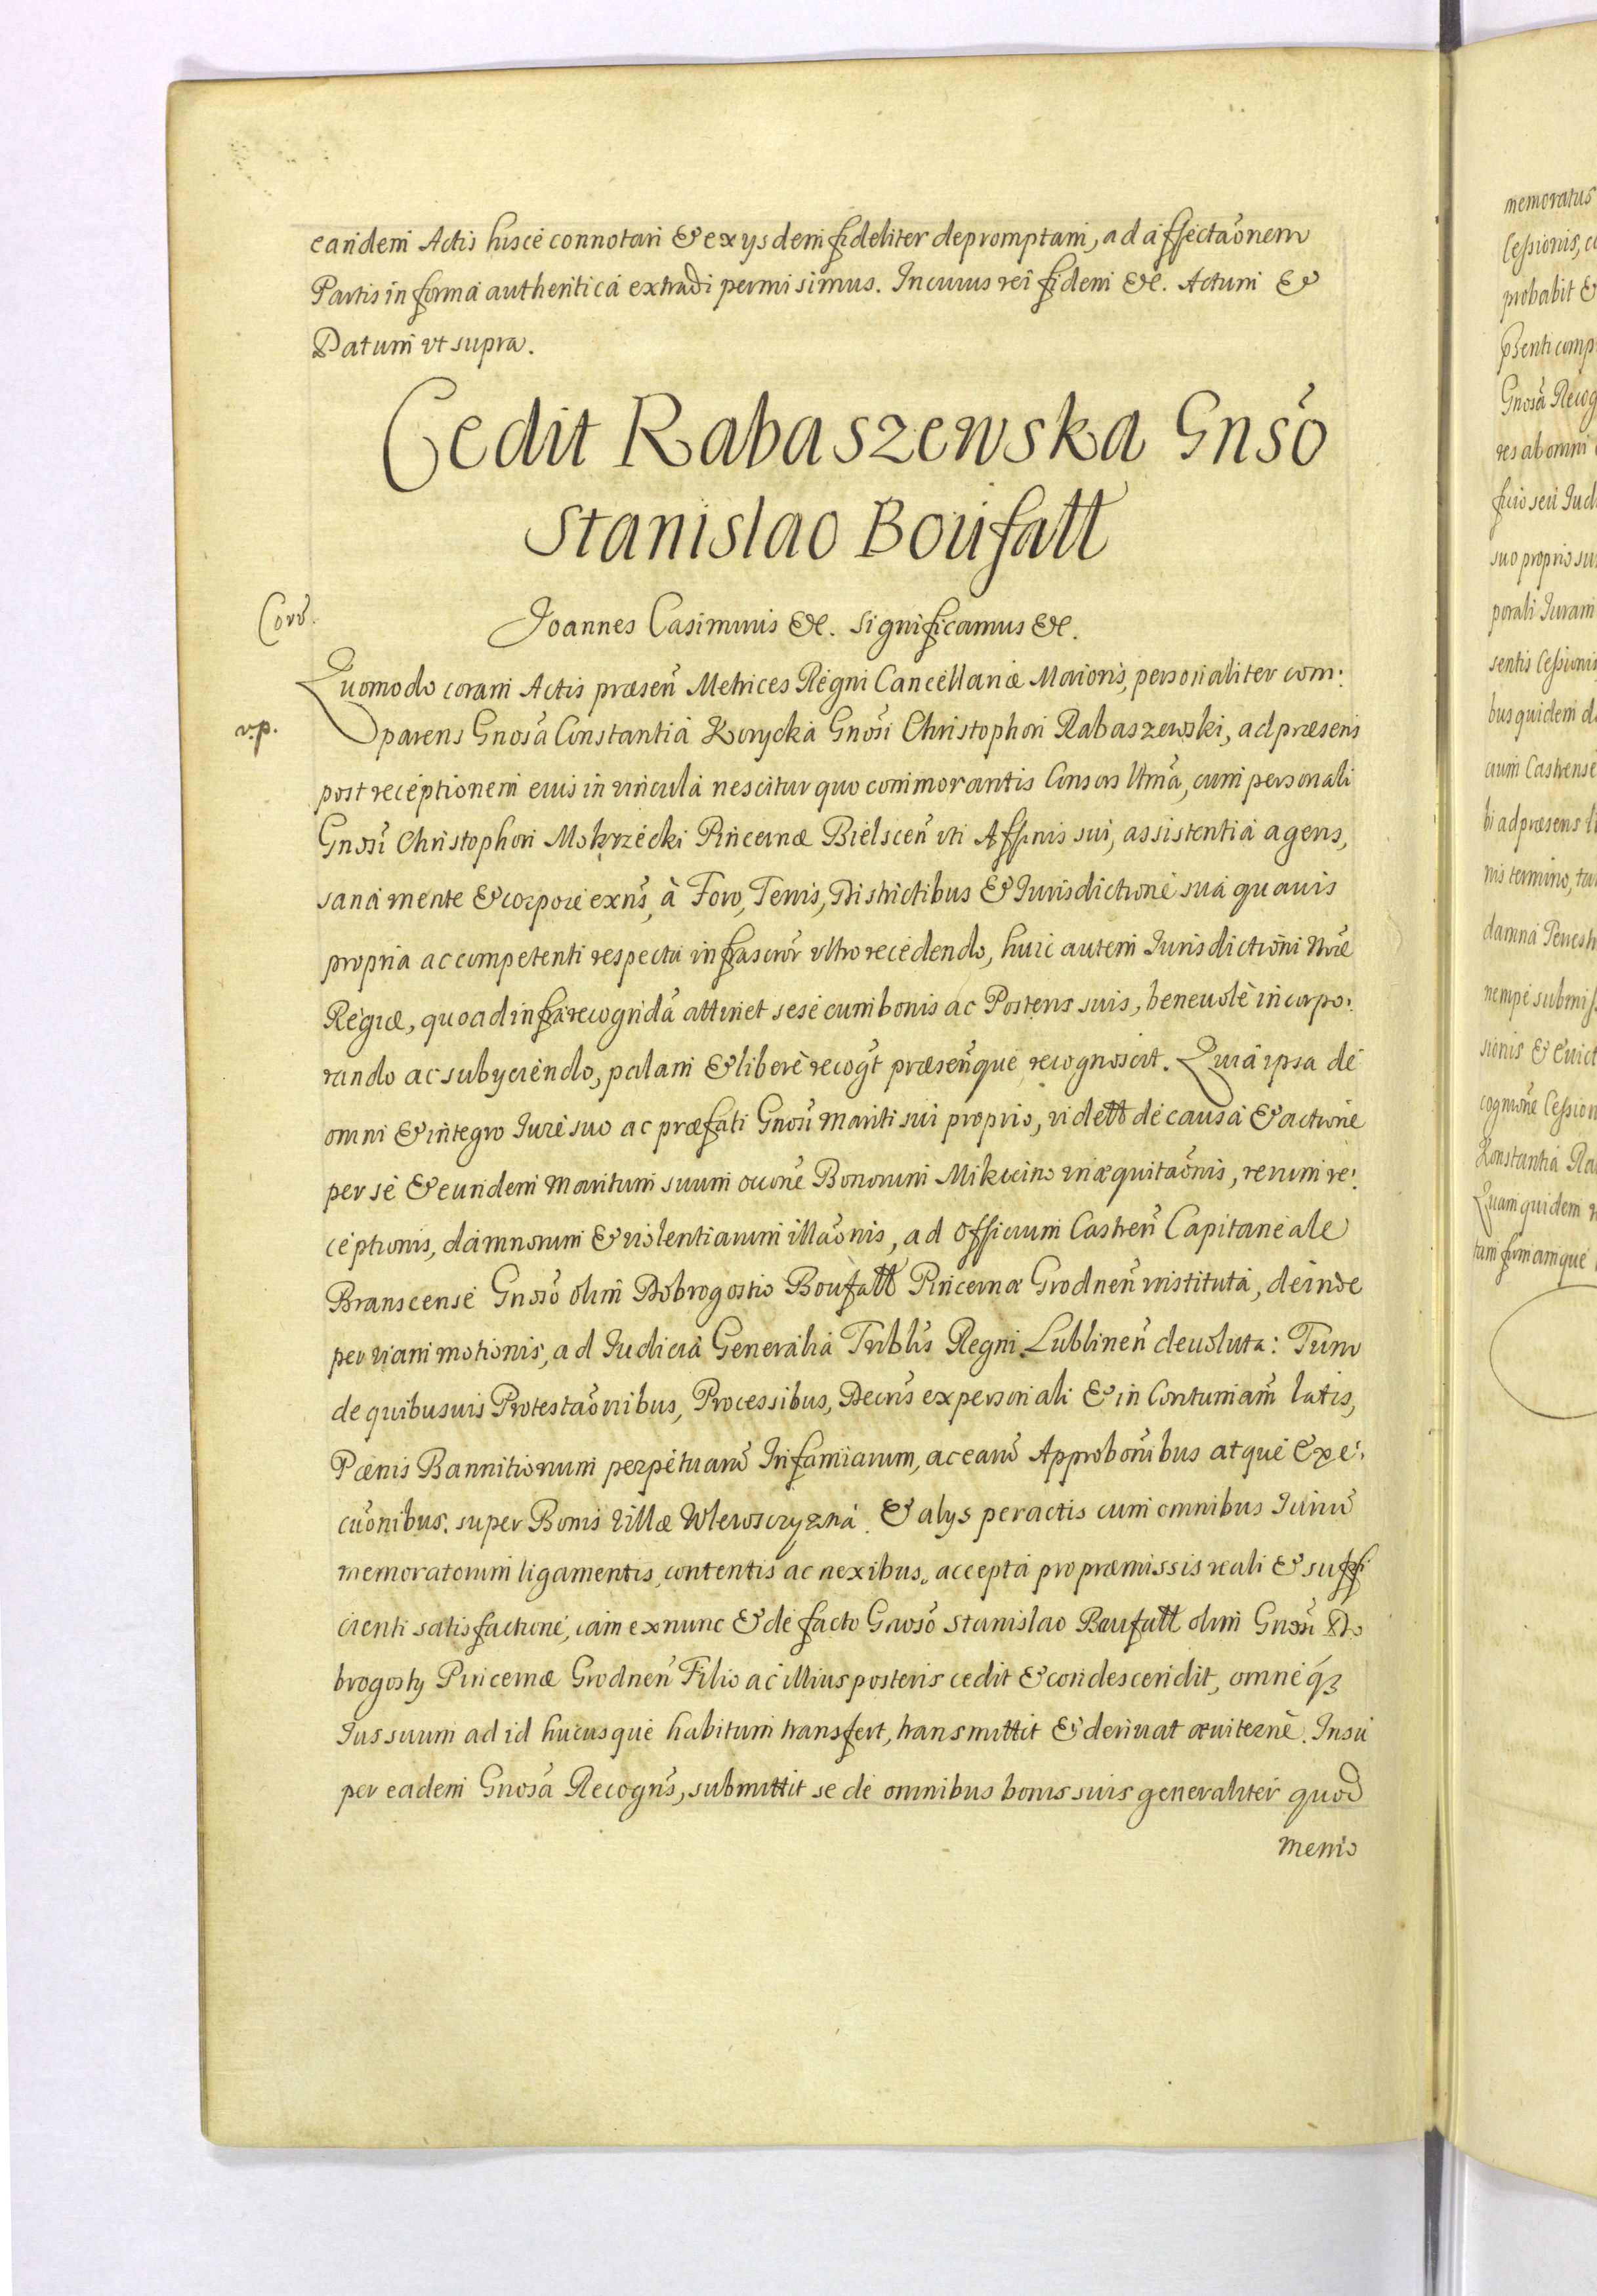 eandem Actis hisce connotari & ex ysdem fideliter depromptam, ad affectaōnem
Partis in forma authentica extradi permisimus. In cuius rei fidem &c. Actum &
Datum vt supra.
Cedit Rabaszewska Gnsō
Stanislao Boufałł
Joannes Casimirus &c. Significamus &c.
Quomodo coram Actis præsen̄ Metrices Regni Cancellariæ Maioris, personaliter com:
v.p.
parens Gnosā Constantia Korycka Gnosī Christophori Rabaszewski, ad præsens
post receptionem eius in vincula nescitur quo commorantis Consors ltmā, cum personali
Gnosī Christophori Mokrzecki Pincernæ Bielscen̄ vti Affinis sui, assistentia agens,
sana mente & corpore exn̄s, à Foro, Terris, Districtibus & Jurisdictione sua quauis
propria ac competenti respectu infrascrōr vltro recedendo, huic autem Jurisdictioni Nrāe
Regiæ, quo ad infra recogndā attinet sese cum bonis ac Posteris suis, beneuolè incorpo:
rando ac subyciendo, palam & liberè recogt̄ præsen̄que recognoscit. Quia ipsa de
omni & integro Jure suo ac præfati Gnosī mariti sui proprio, vidett de causa & actione
per se & eundem Maritum suum occōne Bonorum Mikicino inæquitaōnis, rerum re:
ceptionis, damnorum & violentiarum illaōnis, ad Officium Castren̄ Capitaneale
Branscense Gnosō olim Dobrogostio Boufałł Pincernæ Grodnen̄ instituta, deinde
per viam motionis, ad Judicia Generalia Tribl̄is Regni Lublinen̄ deuoluta: Tum
de quibusuis Protestaōnibus, Processibus, Decrīs ex personali & in Contumam̄ latis,
Pœnis Bannitionum perpetuarū Infamiarum, ac earū Approbōnibus atque Exe:
cuōnibus. super Bonis Villæ & alys peractis cum omnibus Juriū
memoratorum ligamentis, contentis ac nexibus, accepta pro præmissis reali & suffi
cienti satisfactione, iam ex nunc & de facto Gnosō Stanislao Boufałł olim Gnosī Do
brogosty Pincernæ Grodnen̄ Filio ac illius posteris cedit & condescendit, omneq́ꝫ
Jus suum ad id hucusque habitum transfert, transmittit & deriuat æuiternè. Insu
per eadem Gnosā Recogn̄s, submittit se de omnibus bonis suis generaliter quod
memo
memoratus
Cessionis,
probabit &
Gnosā Recog
res ab omni
ficio seu Jud
suo proprio su
porali Juram
sentis Cessionis
bus quidem d
cium Castrense
bi ad præsens
nis termino, ta
damna
nempe submis
sionis & Euict
cognōne Cession
Konstantia Ra
Quam quidem
tam firmamque